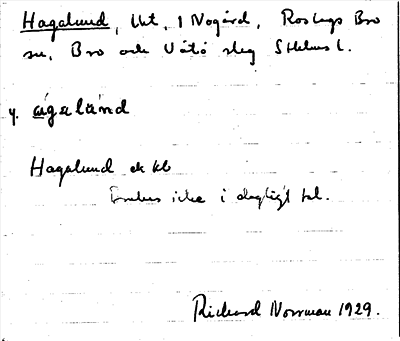 Hagalund, Lht, 1 Nogård, Roslags Bro
sn, Bro och Vätö slag Sthlms l.
y. agalund
Hagalund ek kb
Endes icke i dagligt tal.
Rickard Norrman 1929.